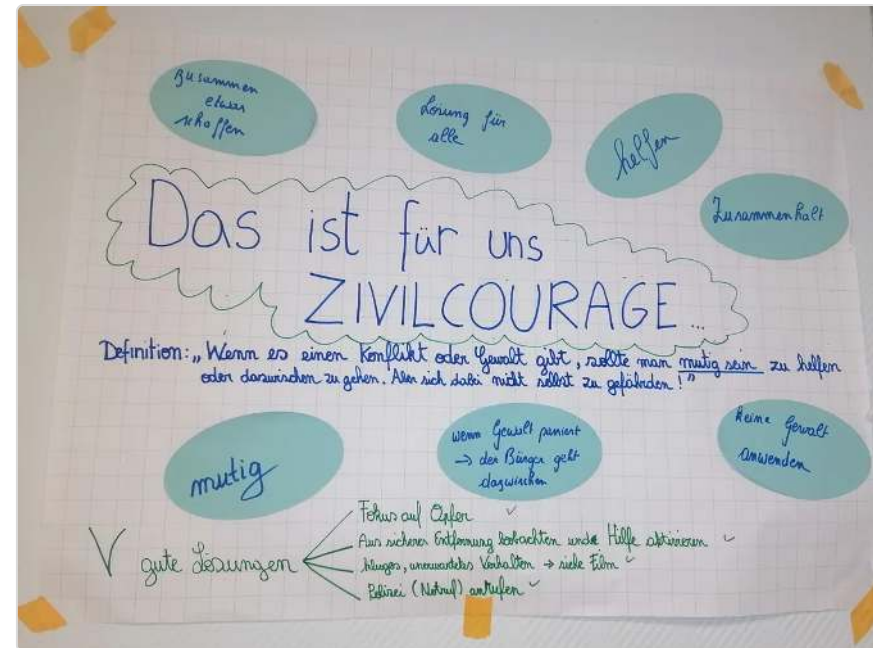 Zusammen
etwas
schaffen
Lösung für
alle
helfen
Zusammenhalt
Das ist für uns
ZIVILCOURAGE...
Definition: „Wenn es einen Konflikt oder Gewalt gibt, sollte man mutig sein zu helfen
oder dazwischen zu gehen. Aber sich dabei nicht selbst zu gefährden!"
mutig
wenn Gewalt passiert
→ der Bürger geht
dazwischen
keine Gewalt
anwenden
gute Lösungen
Fokus auf Opfer ✓
Aus sicherer Entfernung beobachten und Hilfe aktivieren ✓
kluges, unerwartetes Verhalten → siehe Film ✓
Polizei (Notruf) anrufen ✓